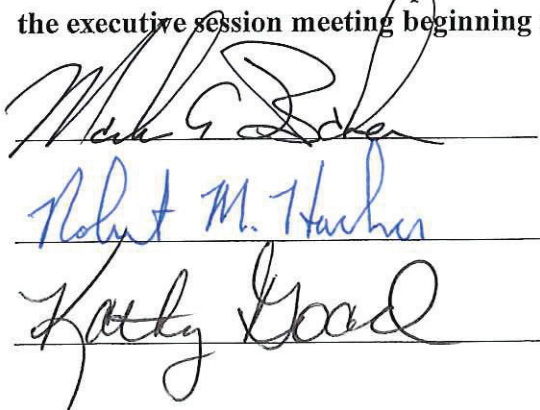 the executive session meeting beginning
Mark E Baker
Robert M. Hacker
Kathy Goad